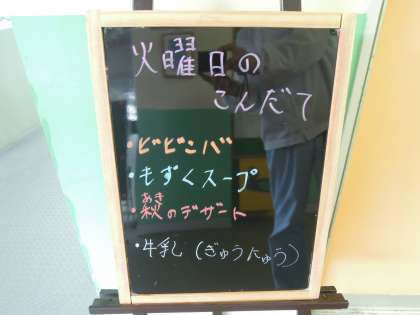 火曜日の
こんだて
・ビビンバ
・もずくスープ
あき
・秋のデザート
・牛乳（ぎゅうにゅう）